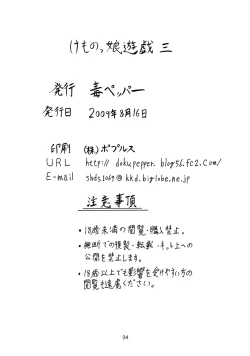 けもの娘遊戯 三
発行 毒ペッパー
発行日 2009年8月16日
印刷 (株)ポプルス
URL http://dokupepper.blog56.fc2.com/
E-mail shds1069@kkd.biglobe.ne.jp
注意事項
・18歳未満の閲覧・購入禁止。
・無断での複製・転載・ネット上への
公開を禁止します。
・18歳以上でも影響を受けやすい方の
閲覧も遠慮ください。
34